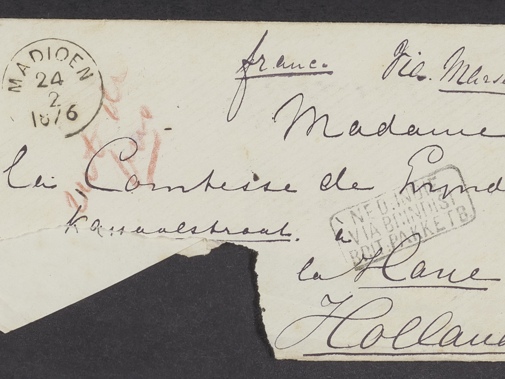 MADIOEN
24
2
1876
franco
Via Mars
Madame
la Comtesse de Lynd
Kanaalstraat. à
NED. INDIE
VIA BRINDISI
BRIT. PAKKETB
la Haye
Holland